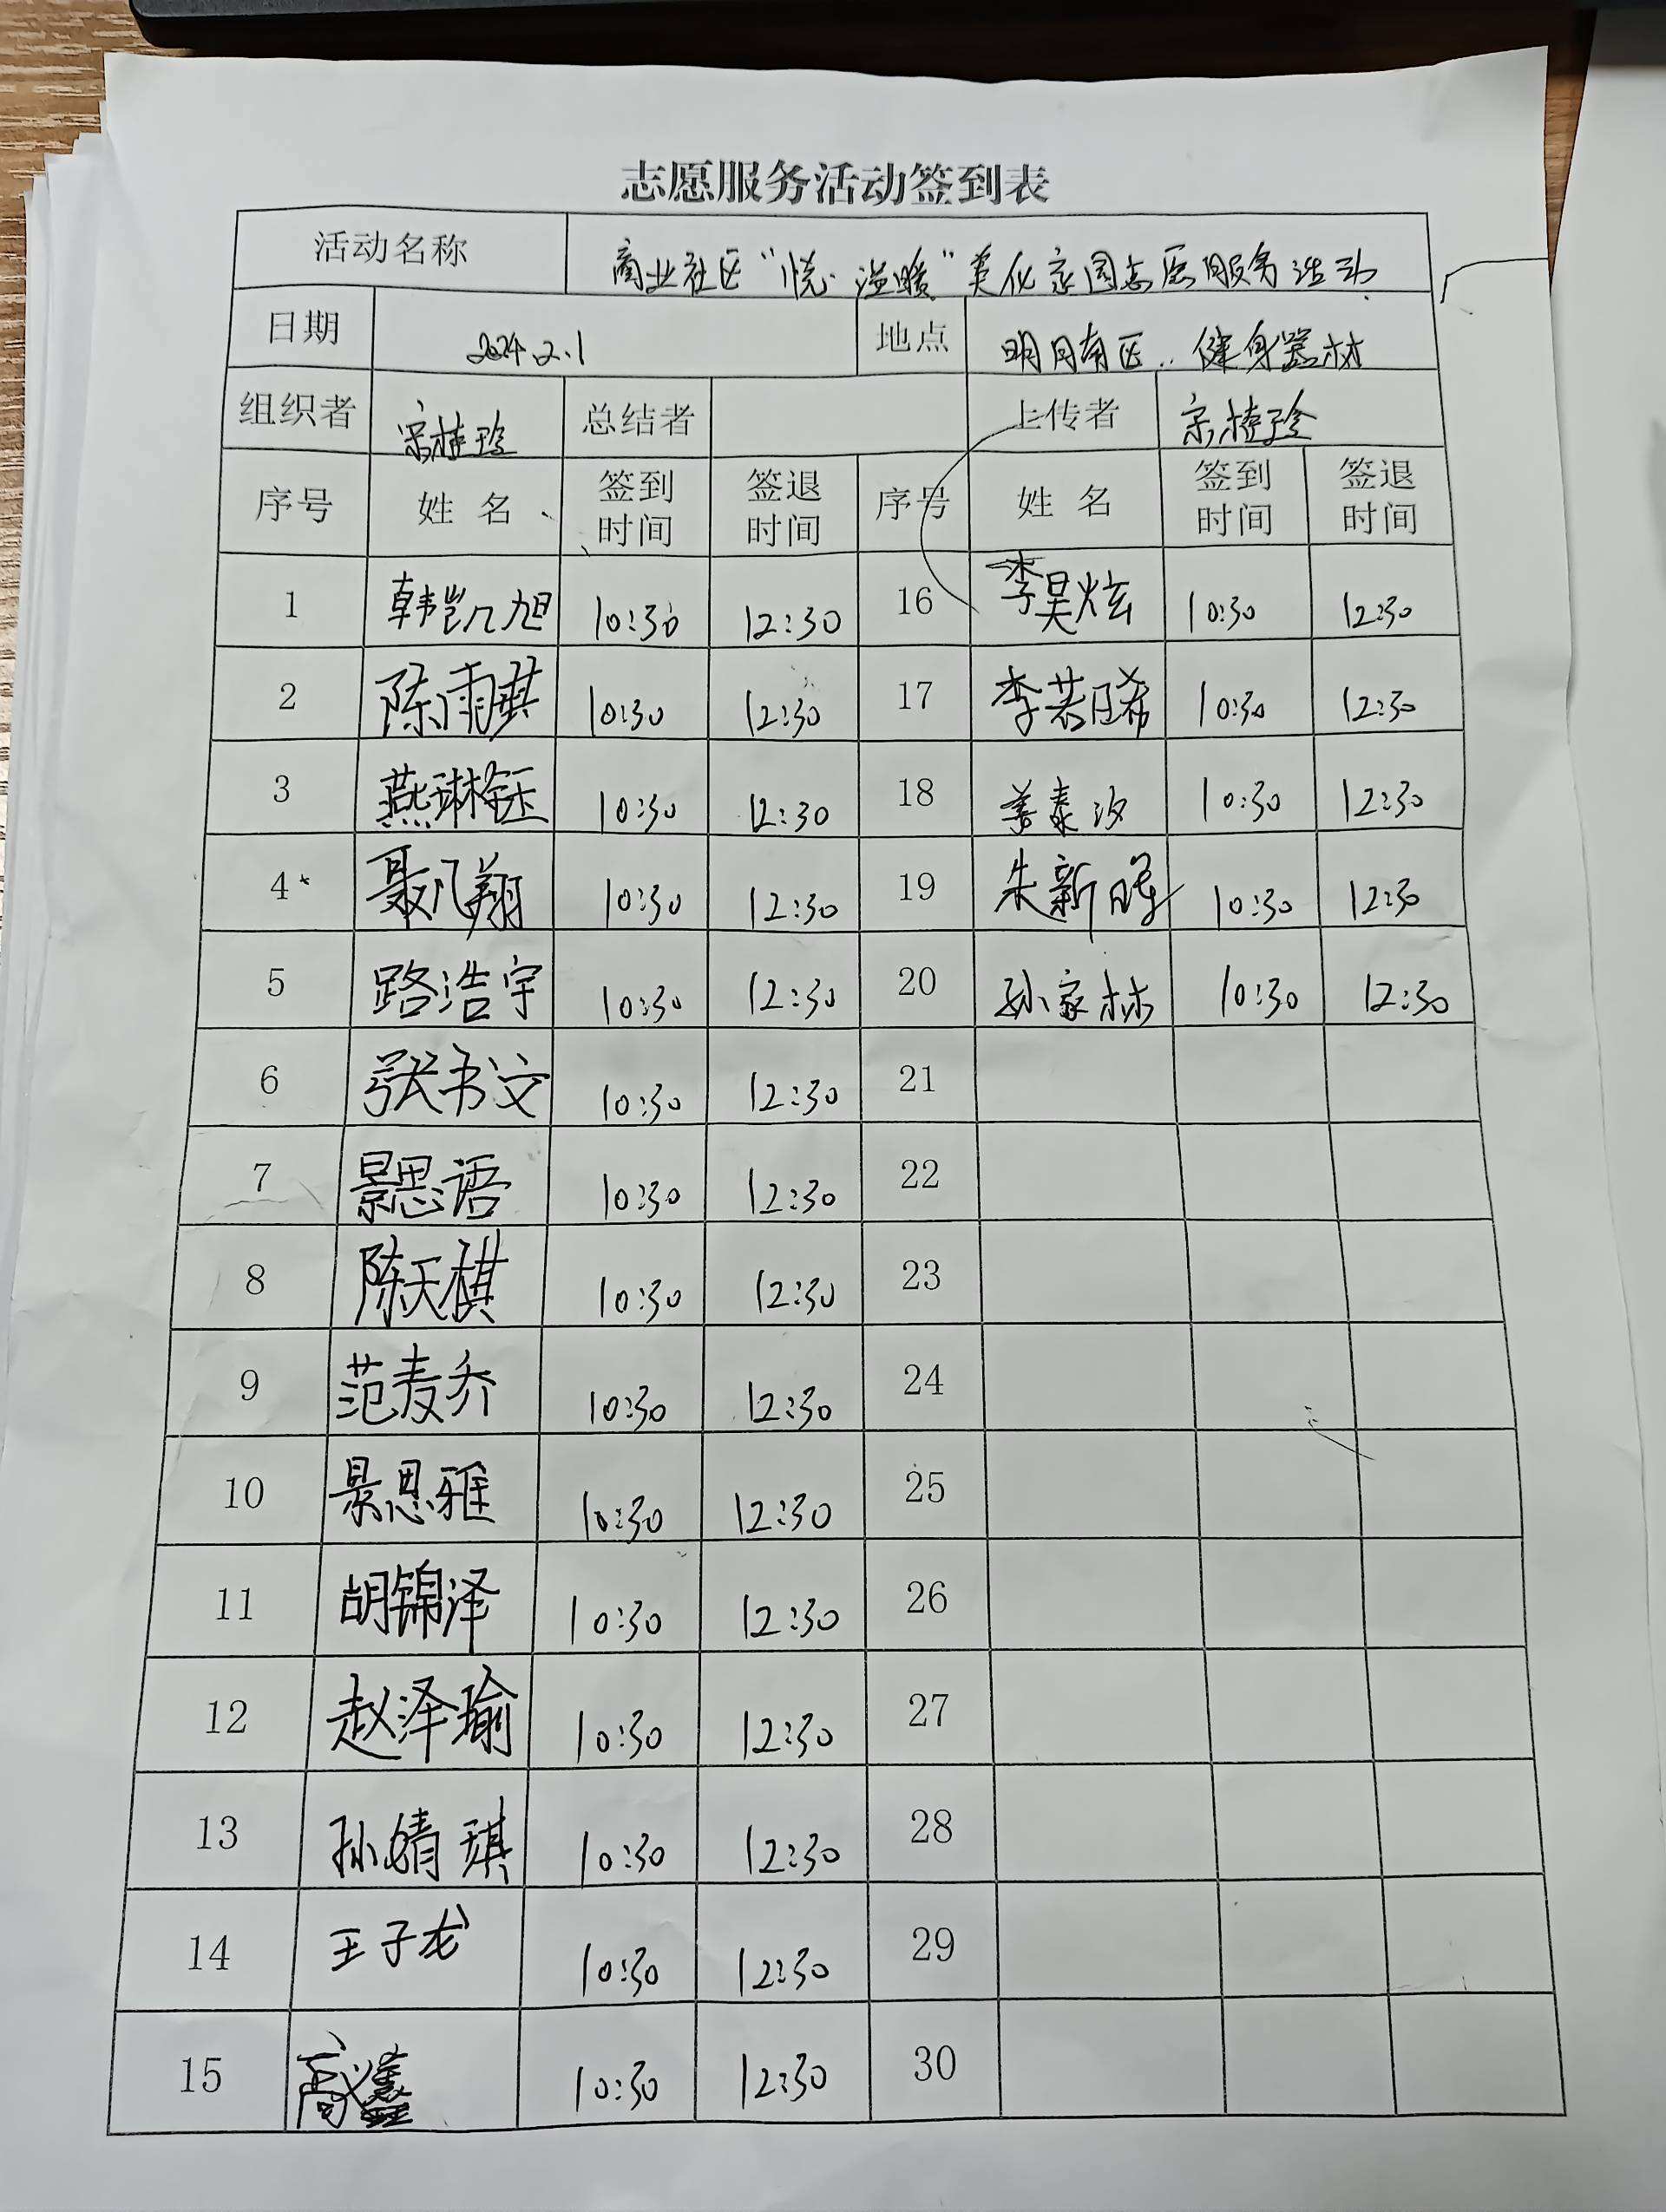 志愿服务活动签到表
活动名称 商业社区“悦·溢暖”美化家园志愿服务活动
日期 2024.2.1 地点 明月南区 健身器材
组织者 宗桂玲 总结者 上传者 宗桂玲
序号 姓名 签到时间 签退时间 序号 姓名 签到时间 签退时间
1 韩凯旭 10:30 12:30 16 李昊炫 10:30 12:30
2 陈雨祺 10:30 12:30 17 李若晞 10:30 12:30
3 燕琳钰 10:30 12:30 18 姜泰汐 10:30 12:30
4 聂凡翔 10:30 12:30 19 朱新 10:30 12:30
5 路浩宇 10:30 12:30 20 孙家林 10:30 12:30
6 张书文 10:30 12:30 21
7 景思语 10:30 12:30 22
8 陈天祺 10:30 12:30 23
9 范麦乔 10:30 12:30 24
10 景思雅 10:30 12:30 25
11 胡锦泽 10:30 12:30 26
12 赵泽瑜 10:30 12:30 27
13 孙婧琪 10:30 12:30 28
14 王子龙 10:30 12:30 29
15 高 10:30 12:30 30